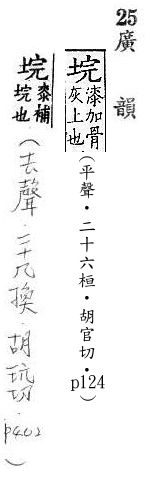 25廣韻
垸 漆加骨灰上也(平聲・二十六桓・胡官切・p124)
垸 桼補垸也(去聲・二十九換・胡玩切・p402)